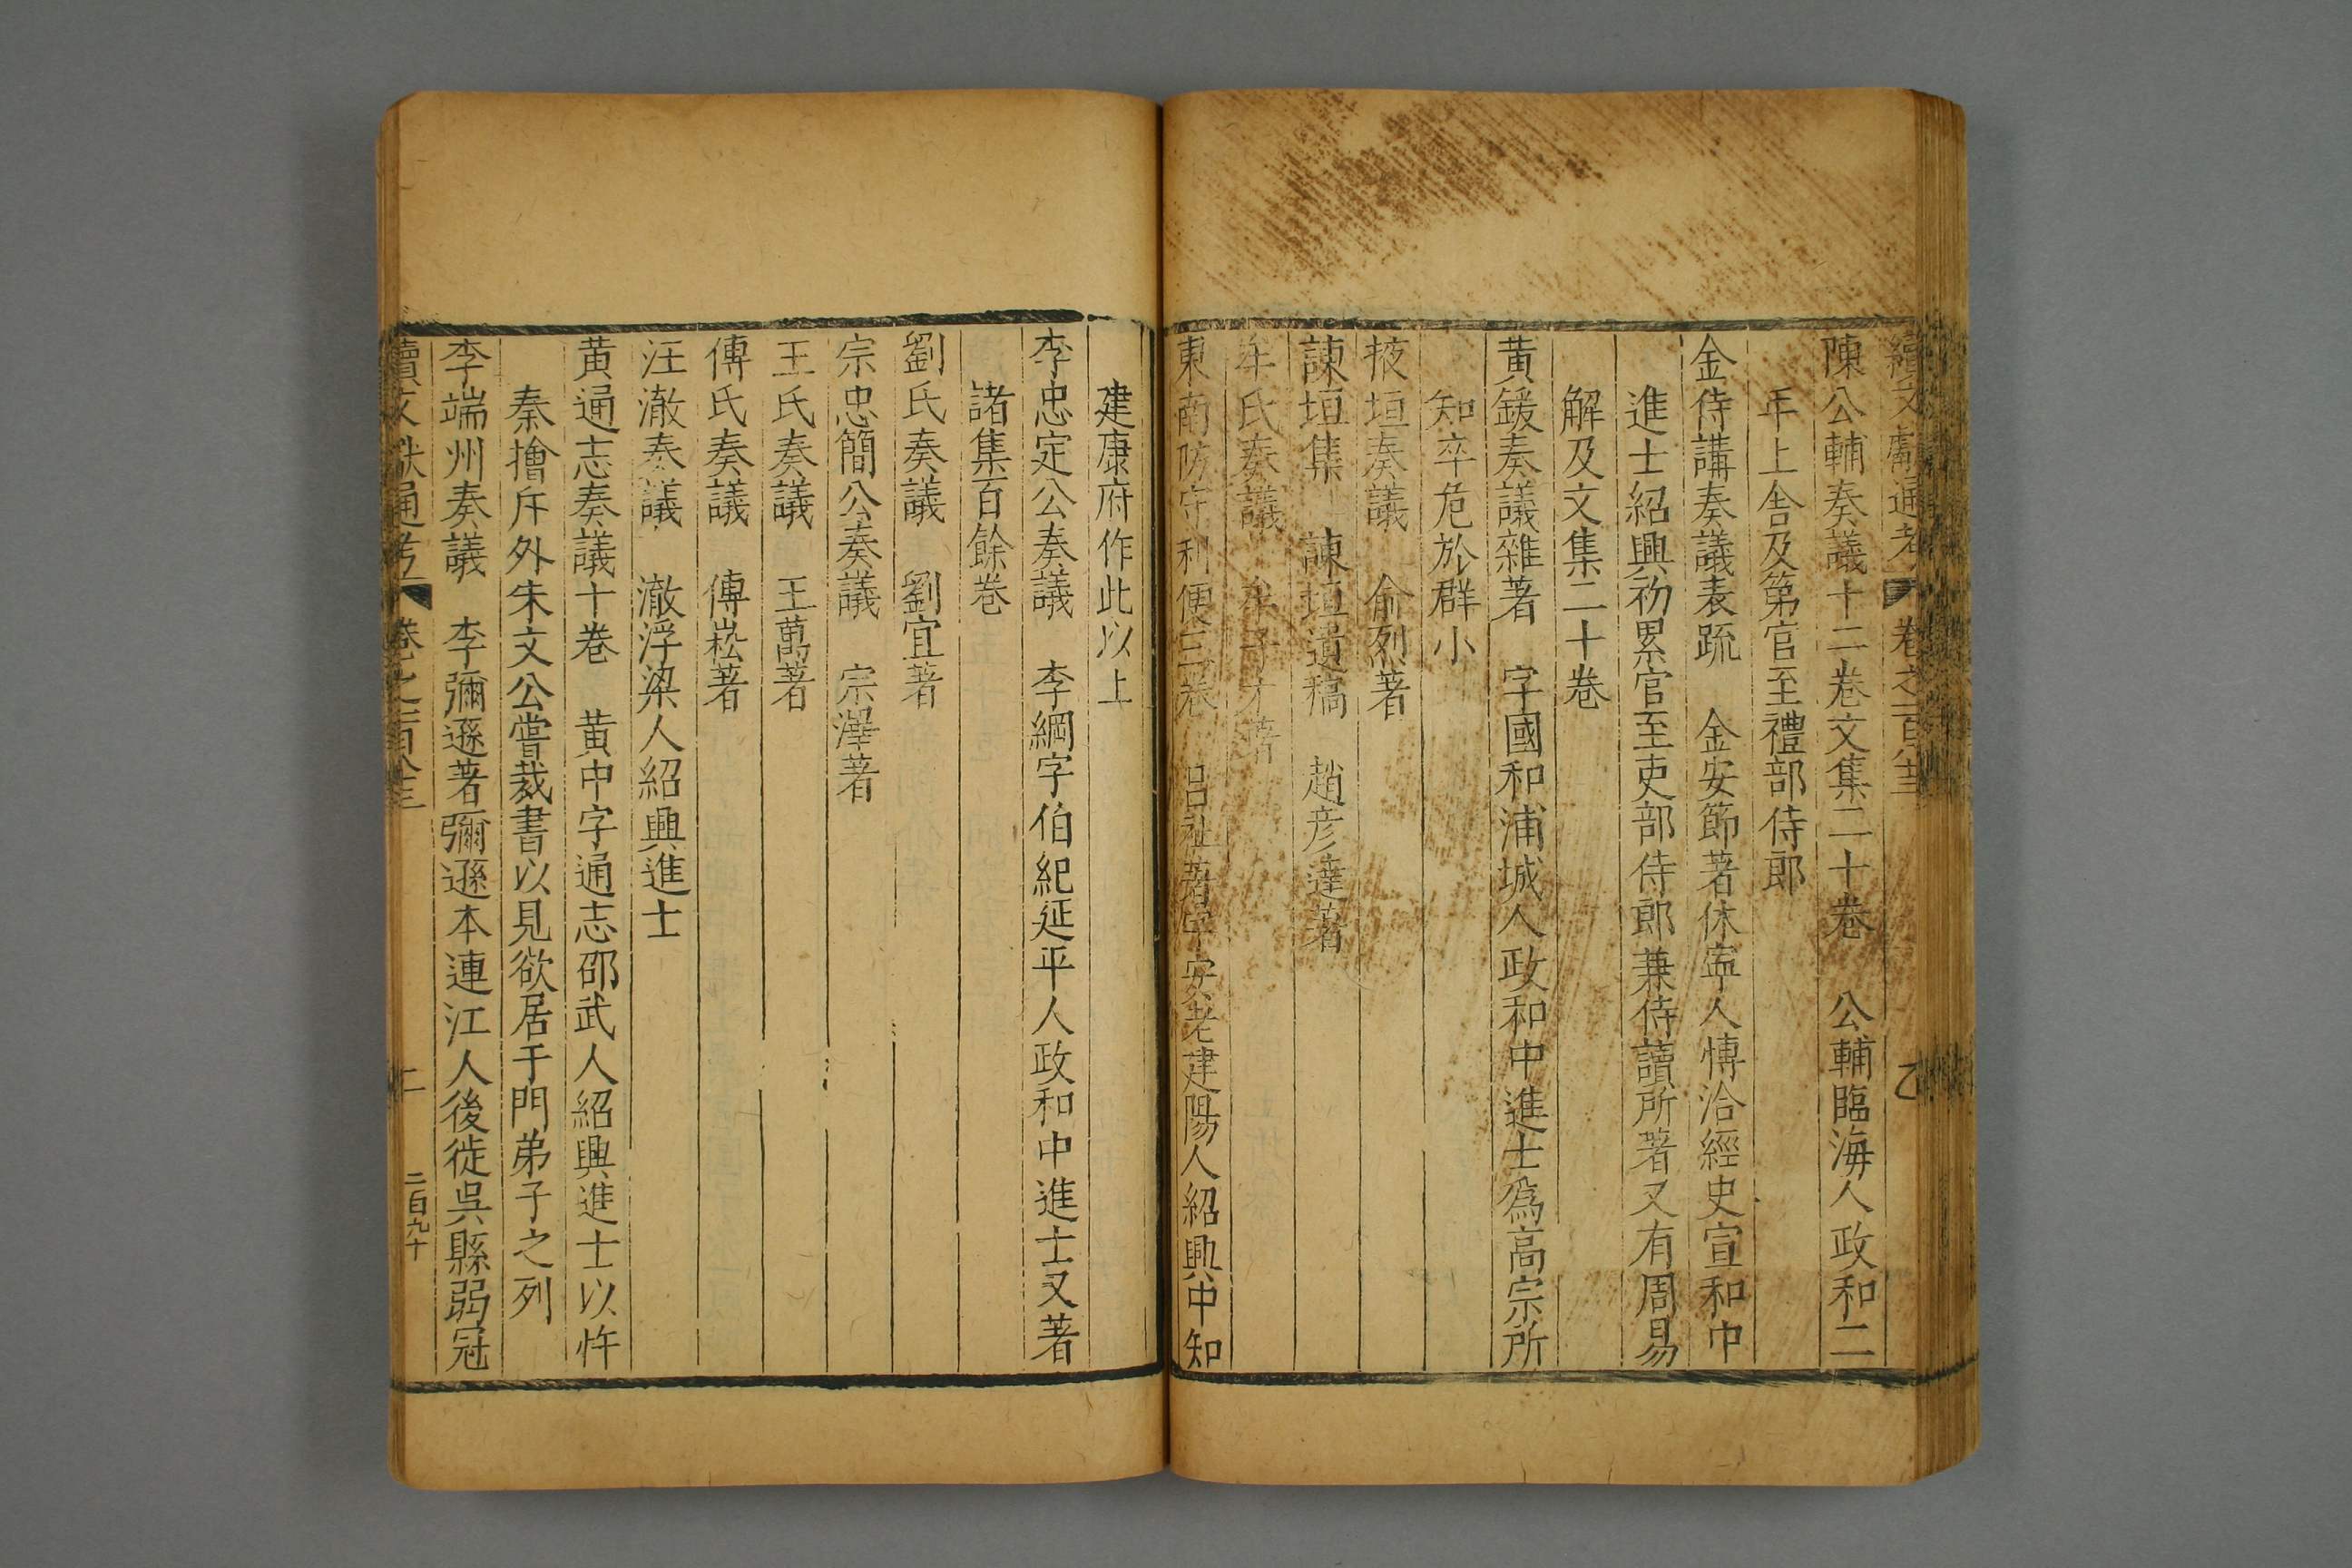 續文獻通考 卷之一百八十三 乙
陳公輔奏議十二卷文集二十卷 公輔臨海人政和二
年上舍及第官至禮部侍郎
金侍講奏議表䟽 金安節著休寧人愽洽經史宣和中
進士紹興初累官至吏部侍郎兼侍讀所著又有周易
解及文集二十卷
黄鍰奏議雜著 字國和浦城人政和中進士為高宗所
知卒危於群小
掖垣奏議 俞烈著
諫垣集 諫垣遺稿 趙彦逹著
牟氏奏議 牟子才著
東南防守利便三卷 吕祉著字安老建陽人紹興中知
建康府作此以上
李忠定公奏議 李綱字伯紀延平人政和中進士又著
諸集百餘卷
劉氏奏議 劉宜著
宗忠簡公奏議 宗澤著
王氏奏議 王萬著
傅氏奏議 傅崧著
汪澈奏議 澈浮梁人紹興進士
黄通志奏議十卷 黄中字通志邵武人紹興進士以忤
秦擒斥外朱文公嘗裁書以見欲居于門弟子之列
李端州奏議 李彌遜著彌遜本連江人後徙吳縣弱冠
續文獻通考 卷之一百八十三 二 二百九十